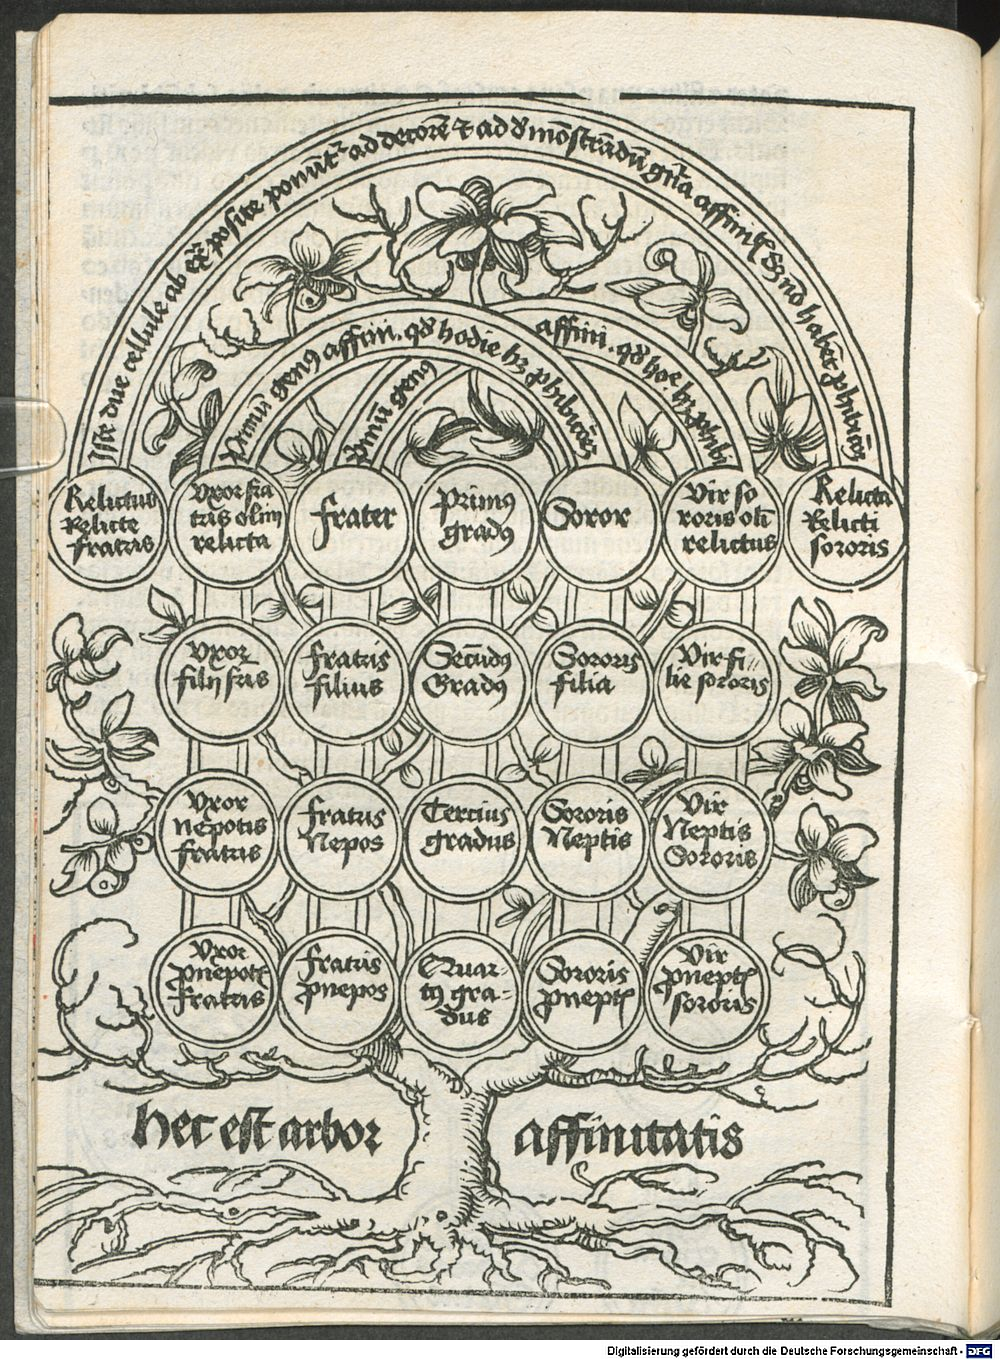 Iste due cellule ab ext̄ posite ponūt² ad decorē ⁊ ad dmōstrādū gr̄a affini qđ nō habēt ꝓhibicōeꝫ
Primū genꝰ affini. qđ hodie hꝫ ꝓhibicōeꝫ
Primū genꝰ affini. qđ hoe hꝫ ꝓhibi
Relictus
Relicte
fratris
Vxor fra
tris olim
relicta
frater
Primꝰ
gradꝰ
Soror
Vir so
roris oli
relictus
Relicta
Relicti
sororis
Vxor
filij fr̄is
fratris
filius
Secūdꝰ
Gradꝰ
Sororis
filia
Vir fi⸗
lie sororis
Vxor
nepotis
fratris
fratris
Nepos
Tercius
gradus
Sororis
Neptis
Vir
Neptis
Sororis
Vxor
ꝓnepotꝭ
fratris
fratris
ꝓnepos
Quar⸗
tꝰ gra⸗
dus
Sororis
ꝓneptꝭ
Vir
ꝓneptꝭ
sororis
Hec est arbor affinitatis
Digitalisierung gefördert durch die Deutsche Forschungsgemeinschaft - DFG